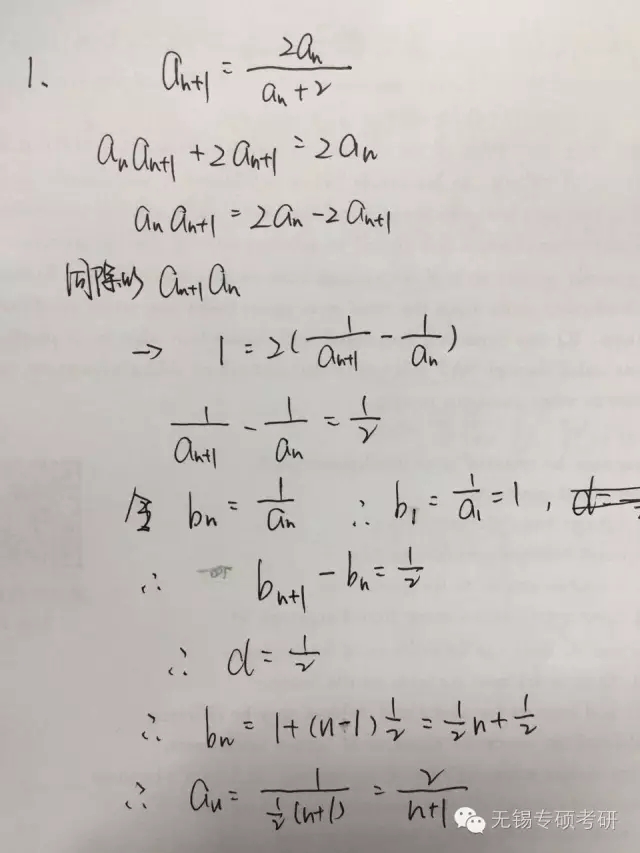 1、 aₙ₊₁ = 2aₙ / (aₙ + 2)
aₙaₙ₊₁ + 2aₙ₊₁ = 2aₙ
aₙaₙ₊₁ = 2aₙ - 2aₙ₊₁
同除以 aₙ₊₁aₙ
→ 1 = 2(1/aₙ₊₁ - 1/aₙ)
1/aₙ₊₁ - 1/aₙ = 1/2
令 bₙ = 1/aₙ ∴ b₁ = 1/a₁ = 1,
∴ bₙ₊₁ - bₙ = 1/2
∴ d = 1/2
∴ bₙ = 1+(n-1)1/2 = 1/2n + 1/2
∴ aₙ = 1 / (1/2(n+1)) = 2/(n+1)
无锡专硕考研